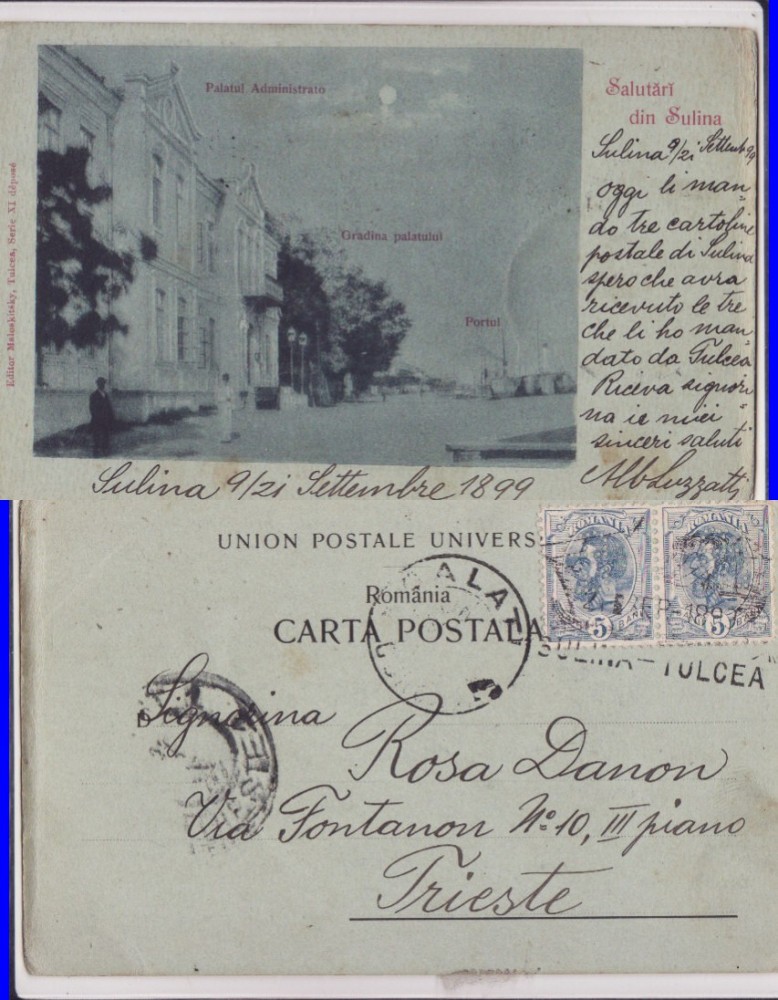 Palatul Administrato
Gradina palatului
Portul
Editor Maloskitsky, Tulcea, Serie XI déposé
Salutări
din Sulina
Sulina 9/21 Settemb 99
oggi li man„
do tre cartoline
postale di Sulina
spero che avra
ricevuto le tre
che li ho man
dato da Tulcea
Riceva signori„
na ie miei
sinceri saluti
Alb Luzzatti
Sulina 9/21 Settembre 1899
UNION POSTALE UNIVERS
România
CARTA POSTALA
ROMANIA
ROMANIA
5 BANI 5
5 5
GALATI
SULINA-TULCEA
Signorina
Rosa Danon
Via Fontanon No 10, III piano
Trieste